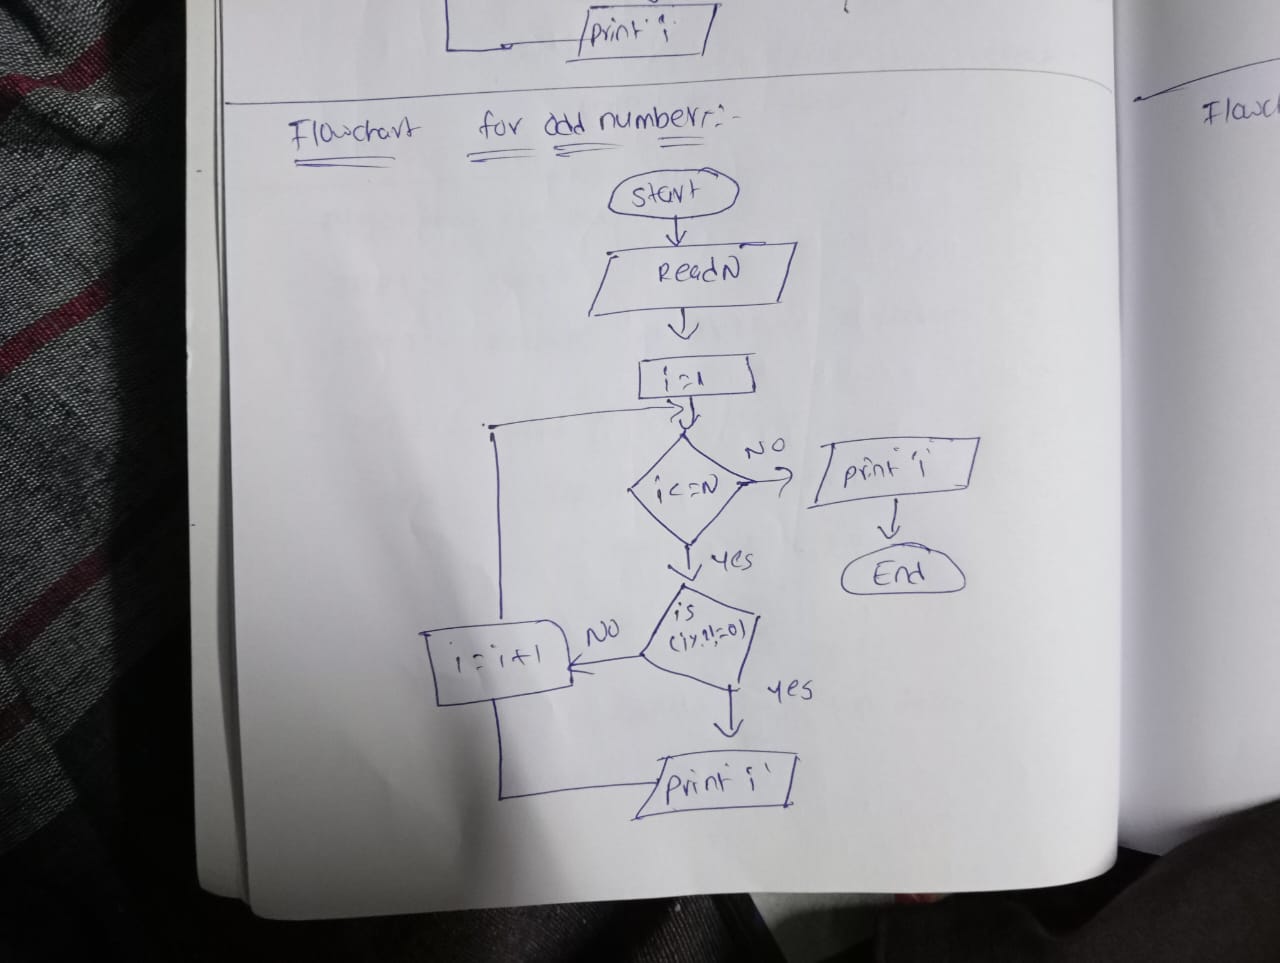 print i
Flowchart for odd number:-
Flowc
Start
Read N
i=1
i<=N
NO
print 'i'
yes
End
is
NO
i=i+1
yes
print i'